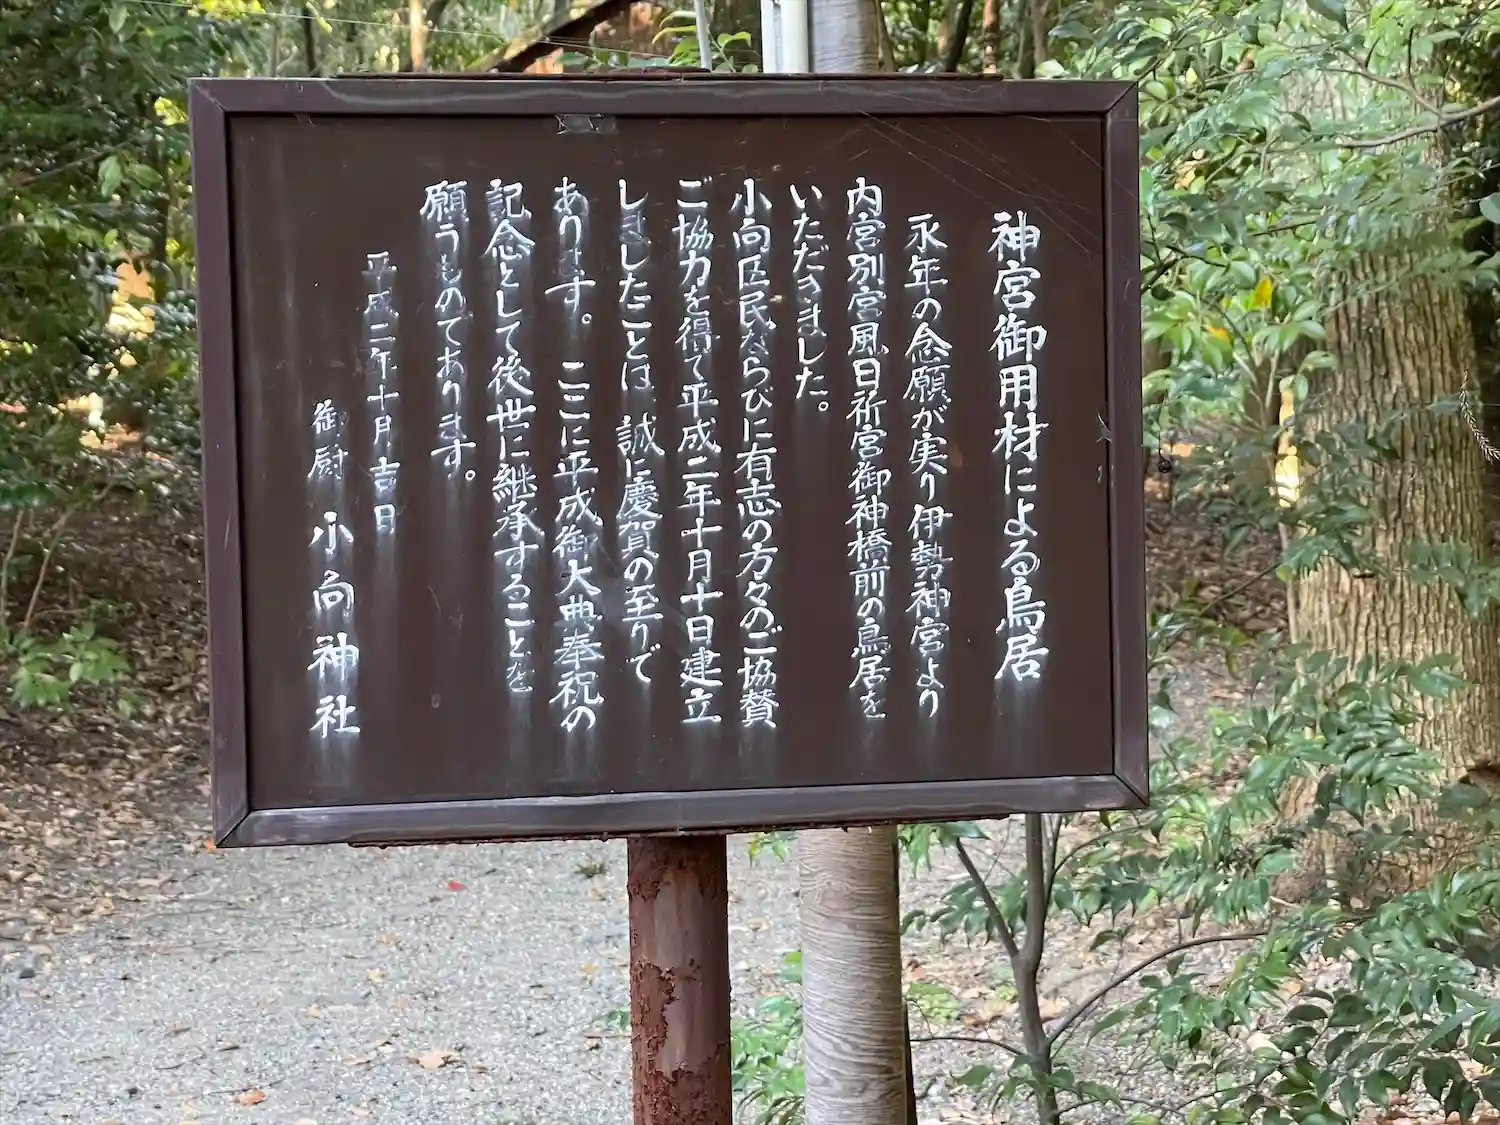 神宮御用材による鳥居
永年の念願が実り伊勢神宮より
内宮別宮風日祈宮御神橋前の鳥居を
いただきました。
小向区民ならびに有志の方々のご協賛
ご協力を得て平成二年十月十日建立
しましたことは、誠に慶賀の至りで
あります。 ここに平成御大典奉祝の
記念として後世に継承することを
願うものであります。
平成二年十月吉日
御厨 小向神社